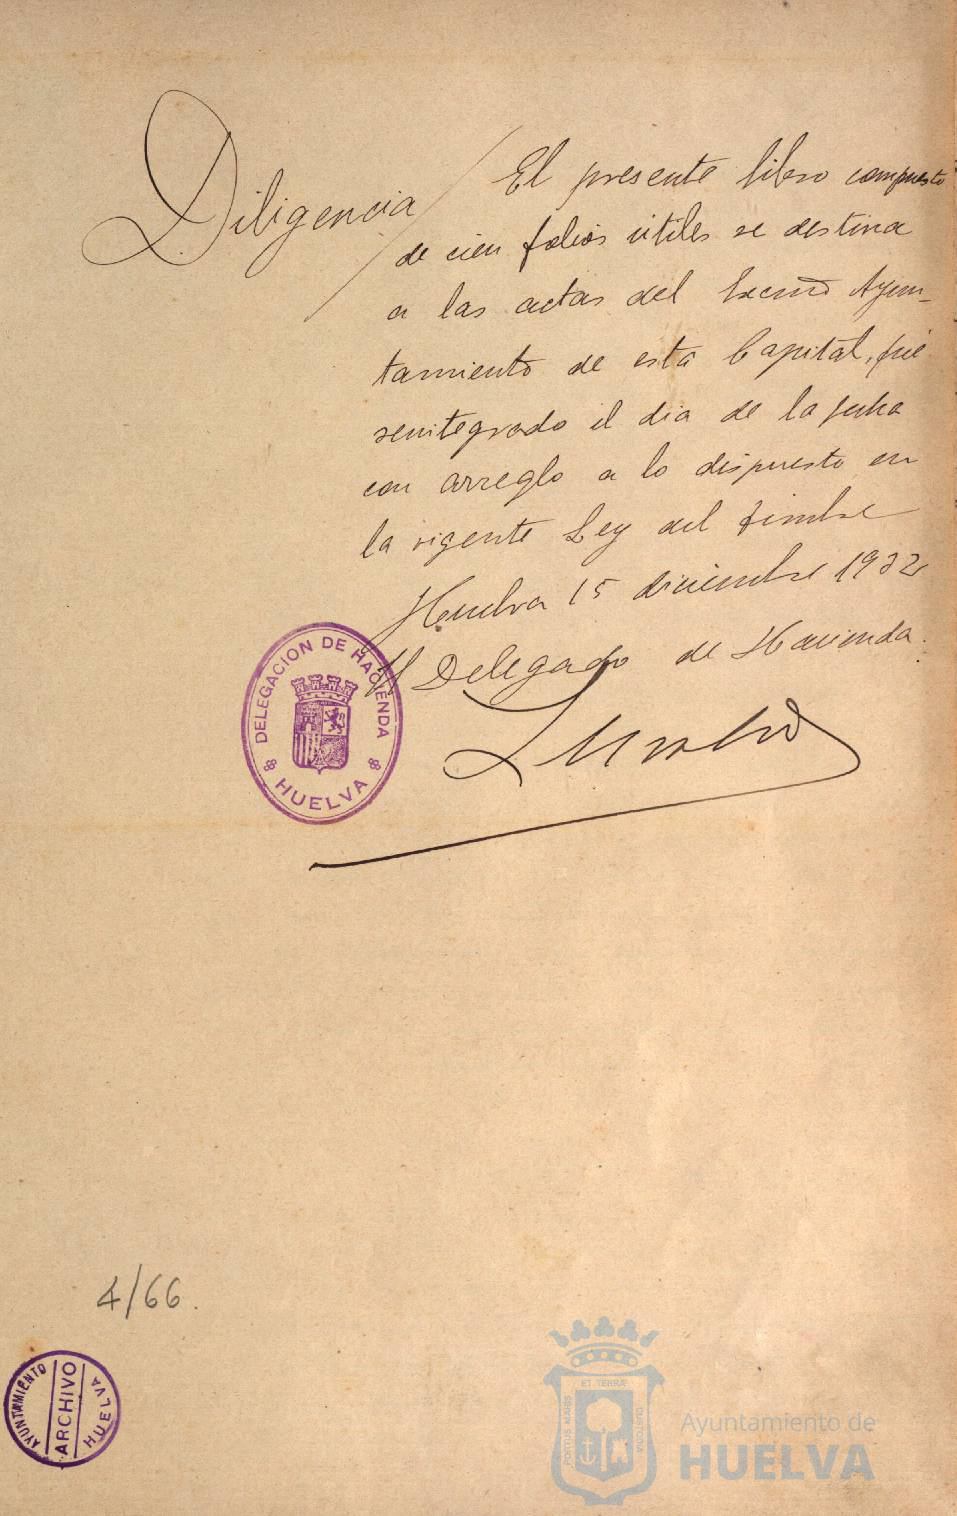 Diligencia / El presente libro compuesto
de cien folios útiles se destina
a las actas del Excmo Ayun-
tamiento de esta Capital, fué
reintegrado el dia de la fecha
con arreglo a lo dispuesto en
la vigente Ley del timbre
Huelva 15 diciembre 1932
El Delegado de Hacienda.
DELEGACION DE HACIENDA
HUELVA
4/66.
AYUNTAMIENTO
ARCHIVO
HUELVA
PORTUS MARIS ET TERRÆ CUSTODIA
Ayuntamiento de
HUELVA